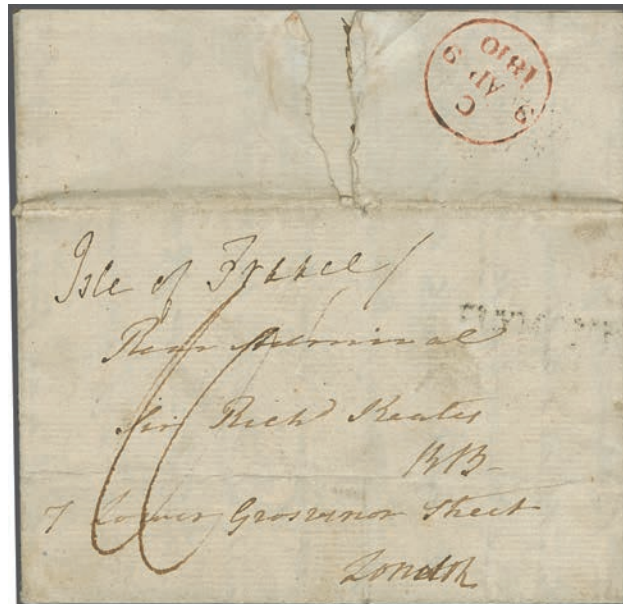 C
9 AP 9
1810
Isle of France /
Rear Admiral
Sir Richd Keates
KB
7 Lower Grosvenor Street
London